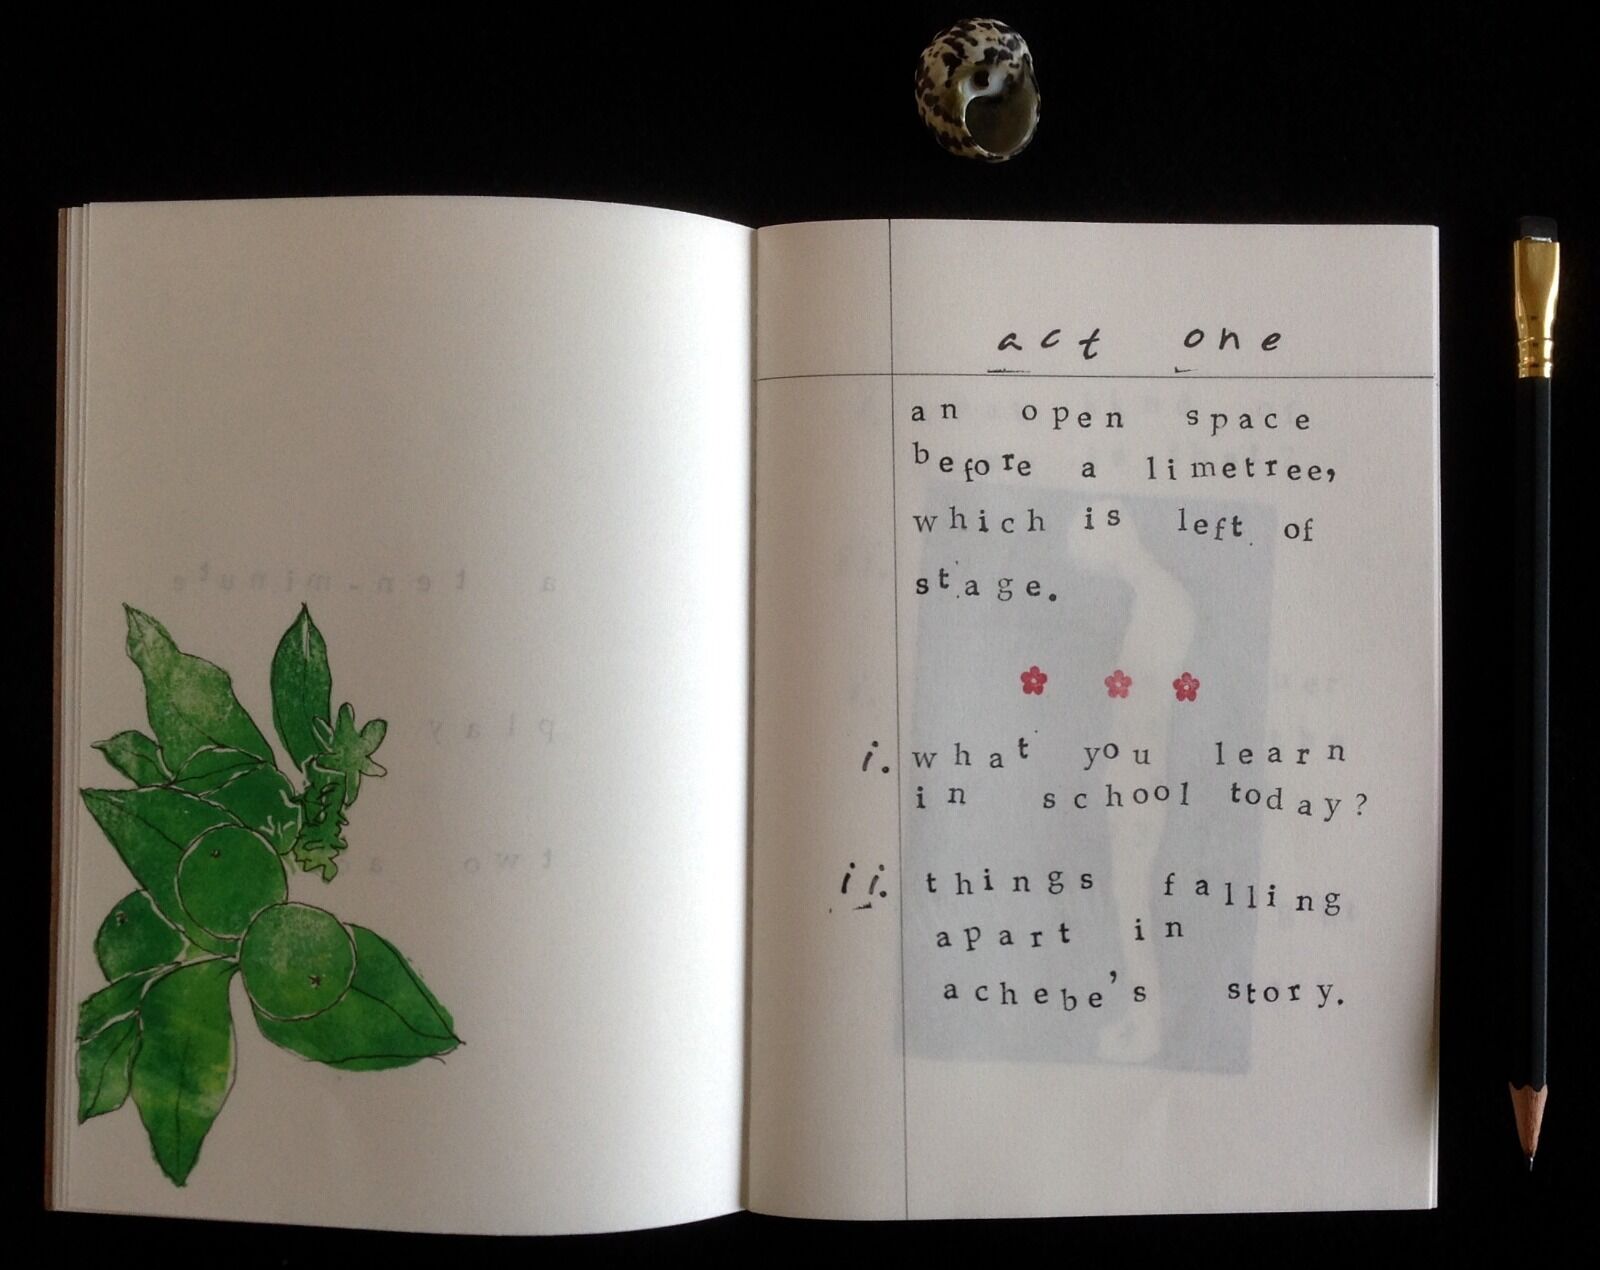 act one
an open space
before a limetree,
which is left of
stage.
i. what you learn
in school today?
ii. things falling
apart in
achebe's story.
a ten-minute
play
two